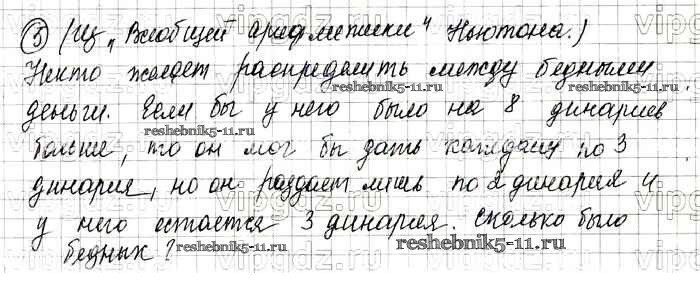 ⑤ (Из „Всеобщей арифметики“ Ньютона.)
Некто желает распределить между бедными
деньги. Если бы у него было на 8 динариев
reshebnik5-11.ru
больше, то он мог бы дать каждому по 3
reshebnik5-11.ru
динария, но он раздает лишь по 2 динария и
у него остается 3 динария. Сколько было
бедных?
reshebnik5-11.ru
vipgdz.ru